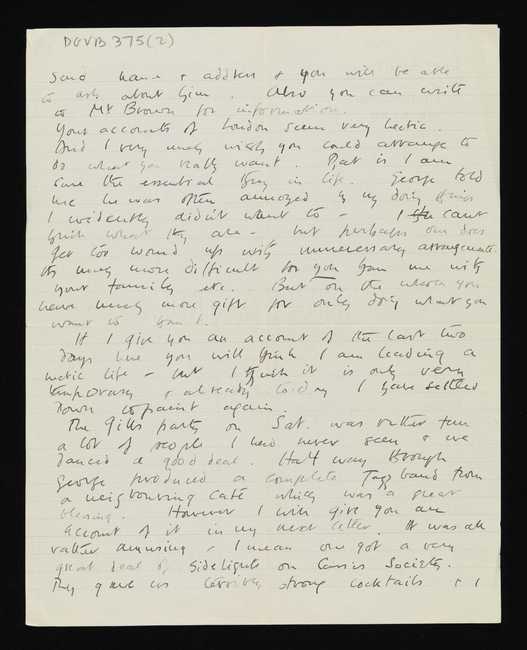 DGVB 375(2)
Said name & address & you will be able
to ask about him. Also you can write
to Mr Brown for information.
Your accounts of London seem very hectic.
And I very much wish you could arrange to
do what you really want. That is I am
sure the essential thing in life. George told
me he was often annoyed by my doing things
I evidently didn't want to - I cant
think what they are - but perhaps one does
get too wound up with unnecessary arrangements.
Its much more difficult for you than me with
your family etc. But on the whole you
have much more gift for only doing what you
want to than I.
If I give you an account of the last two
days here you will think I am leading a
hectic life - but I think it is only very
temporary & already today I have settled
down to paint again
The Gills party on Sat. was rather fun
a lot of people I had never seen & we
danced a good deal. Half way through
George produced a complete Jazz band from
a neigbouring Café which was a great
blessing. However I will give you an
account of it in my next letter. It was all
rather amusing - I mean one got a very
great deal of sidelights on Cassis Society.
They gave us terribly strong cocktails & I